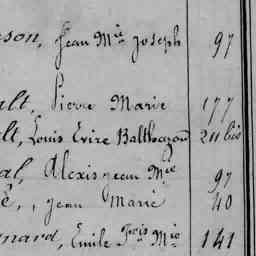 son, Jean Mie Joseph 97
alt, Pierre Marie 177
lt, Louis Evire Balthazard 211 bis
al, Alexis Jean Mie 97
ê, , Jean Marie 40
gnard, Emile Fois Mie 141